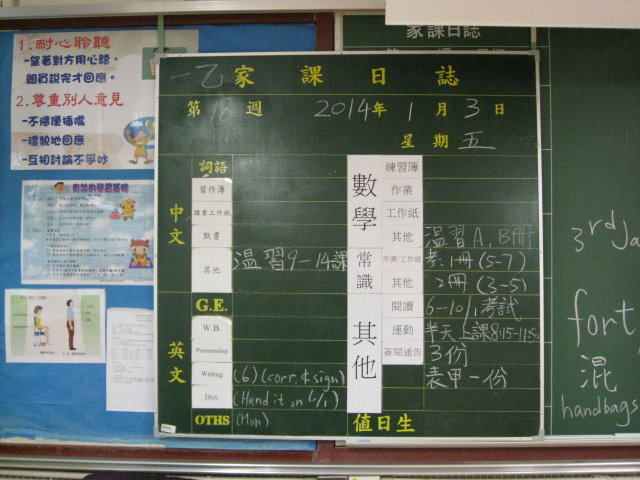 1.耐心聆聽
-望著對方用心聽,
親員說完才回應。
2.尊重別人意見
-不隨便插嘴
-禮貌地回應
-互相討論不爭吵
家課日誌
一乙家課日誌
第18週 2014年1月3日
星期五
中文
詞語
習作簿
課業工作紙
默書
其他 温習9-14課
英文
G.E.
W.B.
Penmanship
Writing (6) (corr. & sign)
Dict. (Hand it on 6/1)
OTHS (Mon)
數學
練習簿
作業
工作紙
其他 温習A,B冊
常識
作業/工作紙 考:1冊(5-7)
其他 2冊(3-5)
其他
閱讀 6-10/1考試
運動 半天上課8:15-11:50
簽閱通告 3份
表甲一份
值日生
3rd Ja
fort
混
handbags